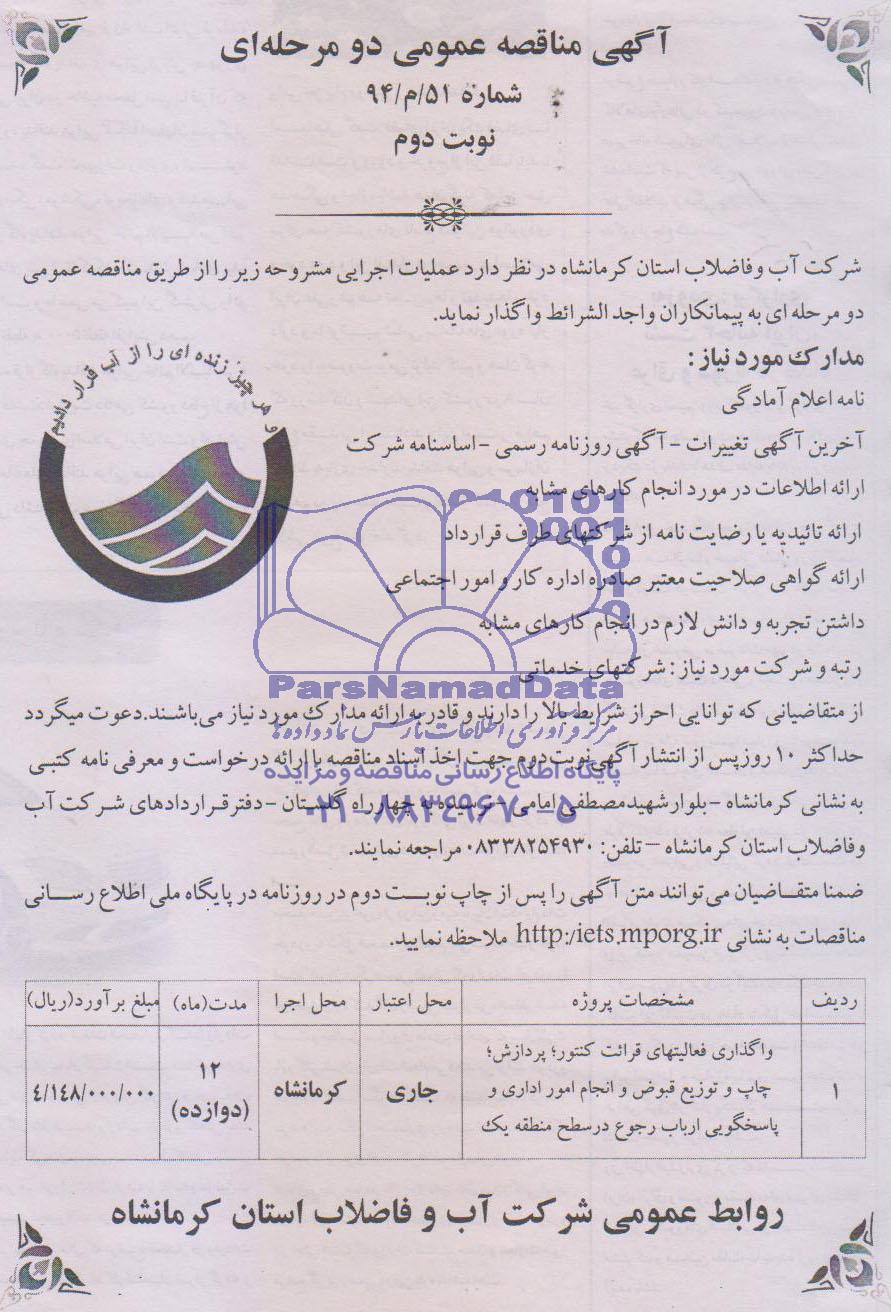 آگهی مناقصه عمومی دو مرحله‌ای
شماره ۵۱/م/۹۴
نوبت دوم
شرکت آب و فاضلاب استان کرمانشاه در نظر دارد عملیات اجرایی مشروحه زیر را از طریق مناقصه عمومی
دو مرحله ای به پیمانکاران واجد الشرائط واگذار نماید.
مدارک مورد نیاز:
نامه اعلام آمادگی
آخرین آگهی تغییرات - آگهی روزنامه رسمی - اساسنامه شرکت
ارائه اطلاعات در مورد انجام کارهای مشابه
ارائه تائیدیه یا رضایت نامه از شرکتهای طرف قرارداد
ارائه گواهی صلاحیت معتبر صادره اداره کار و امور اجتماعی
داشتن تجربه و دانش لازم در انجام کارهای مشابه
رتبه و شرکت مورد نیاز: شرکتهای خدماتی
و هر چیز زنده ای را از آب قرار دادیم
ParsNamadData
مرکز فرآوری اطلاعات پارس نماد داده‌ها
پایگاه اطلاع رسانی مناقصه و مزایده
۰۲۱-۸۸۳۴۹۶۷۰-۵
از متقاضیانی که توانایی احراز شرایط بالا را دارند و قادر به ارائه مدارک مورد نیاز می‌باشند.دعوت میگردد
حداکثر ۱۰ روز پس از انتشار آگهی نوبت دوم جهت اخذ اسناد مناقصه با ارائه درخواست و معرفی نامه کتبی
به نشانی کرمانشاه -بلوار شهید مصطفی امامی - نرسیده به چهارراه گلستان -دفتر قراردادهای شرکت آب
و فاضلاب استان کرمانشاه – تلفن: ۰۸۳۳۸۲۵۴۹۳۰ مراجعه نمایند.
ضمنا متقاضیان می‌توانند متن آگهی را پس از چاپ نوبت دوم در روزنامه در پایگاه ملی اطلاع رسانی
مناقصات به نشانی http:/iets.mporg.ir ملاحظه نمایید.
ردیف مشخصات پروژه محل اعتبار محل اجرا مدت(ماه) مبلغ برآورد(ریال)
۱ واگذاری فعالیتهای قرائت کنتور؛ پردازش؛ جاری کرمانشاه ۱۲ ٤/١٤٨/٠٠٠/٠٠٠
چاپ و توزیع قبوض و انجام امور اداری و (دوازده)
پاسخگویی ارباب رجوع در سطح منطقه یک
روابط عمومی شرکت آب و فاضلاب استان کرمانشاه